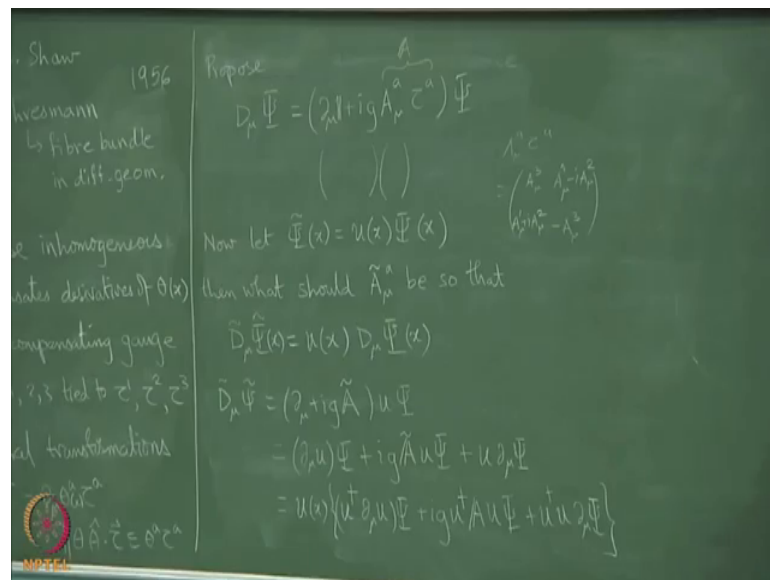 . Shaw
1956
hresmann
↳ fibre bundle
in diff. geom.
inhomogeneous
derivatives of θ(x)
ompensating gauge
, 2, 3 tied to τ¹, τ², τ³
al transformations
θᵃτᵃ
θ Â·τ⃗ ≡ θᵃτᵃ
NPTEL
Propose
A
D_μ Ψ = (∂_μ 1 + ig A_μ^a τ^a) Ψ
( )( )
A_μ^a τ^a
= ( A_μ^3 A_μ^1 - iA_μ^2
A_μ^1 + iA_μ^2 - A_μ^3 )
Now let Ψ̃(x) = u(x) Ψ(x)
then what should Ã_μ^a be so that
D̃_μ Ψ̃(x) = u(x) D_μ Ψ(x)
D̃_μ Ψ̃ = (∂_μ + ig Ã) u Ψ
= (∂_μ u) Ψ + ig Ã u Ψ + u ∂_μ Ψ
= u(x) { (u† ∂_μ u) Ψ + ig u† A u Ψ + u† u ∂_μ Ψ }